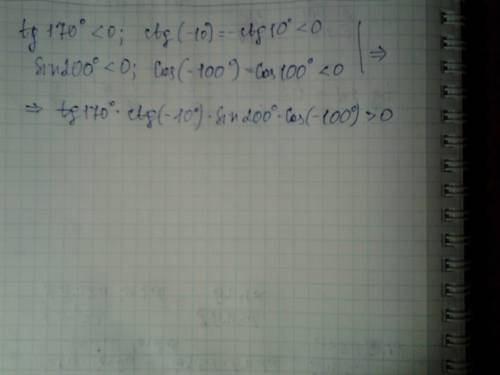 tg 170° < 0; ctg (-10) = -ctg 10° < 0
Sin 200° < 0; Cos(-100°) = Cos 100° < 0 | ⇒
⇒ tg 170° · ctg(-10°) · Sin 200° · Cos(-100°) > 0